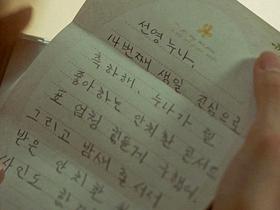 선영누나,
14번째 생일 진심으로
축하해, 누나가 젤
좋아하는 안치환 콘서트
표 엄청 힘들게 구했어.
그리고 밤새 줄서서
받은 안치환
싸인도